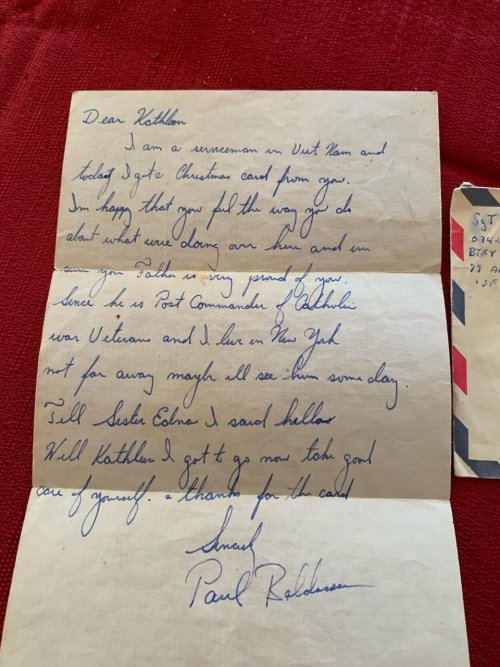 Dear Kathleen
I am a serviceman in Viet Nam and
today I got a Christmas card from you.
Im happy that you feel the way you do
about what were doing over here and im
sure your Father is very proud of you.
Since he is Post Commander of Catholic
war Veterans and I live in New York
not far away maybe ill see him some day.
Tell Sister Edna I said hello
Well Kathleen I got to go now take good
care of yourself. & thanks for the card
Sincerly
Paul
SgT
BTRY